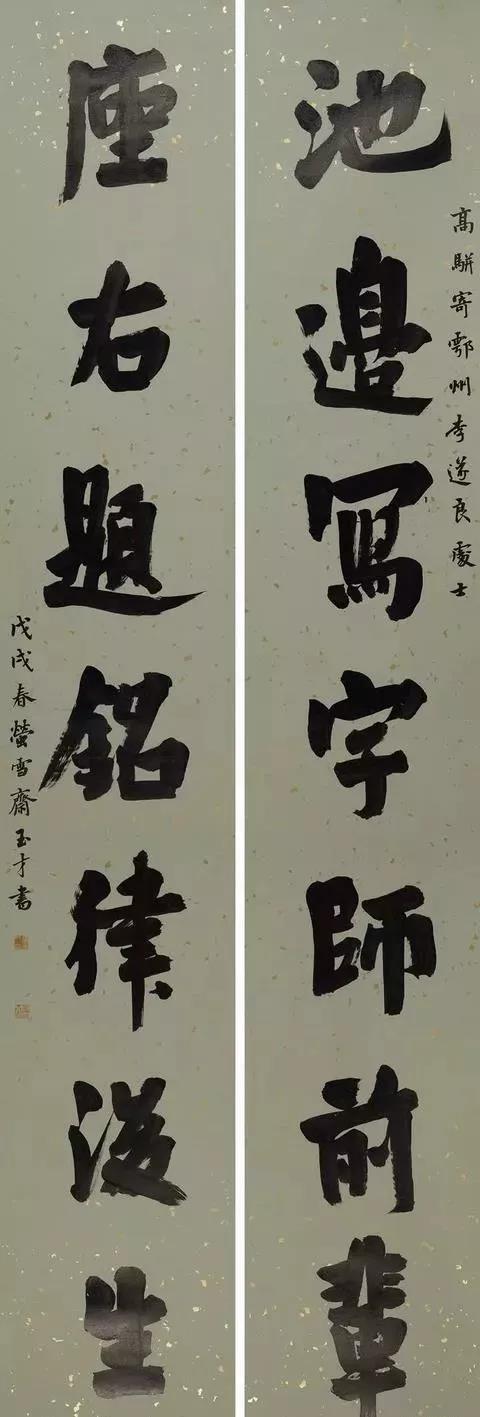 池邊寫字師前輩
高駢寄鄂州李遂良處士
座右題銘律後生
戊戌春螢雪齋玉才書